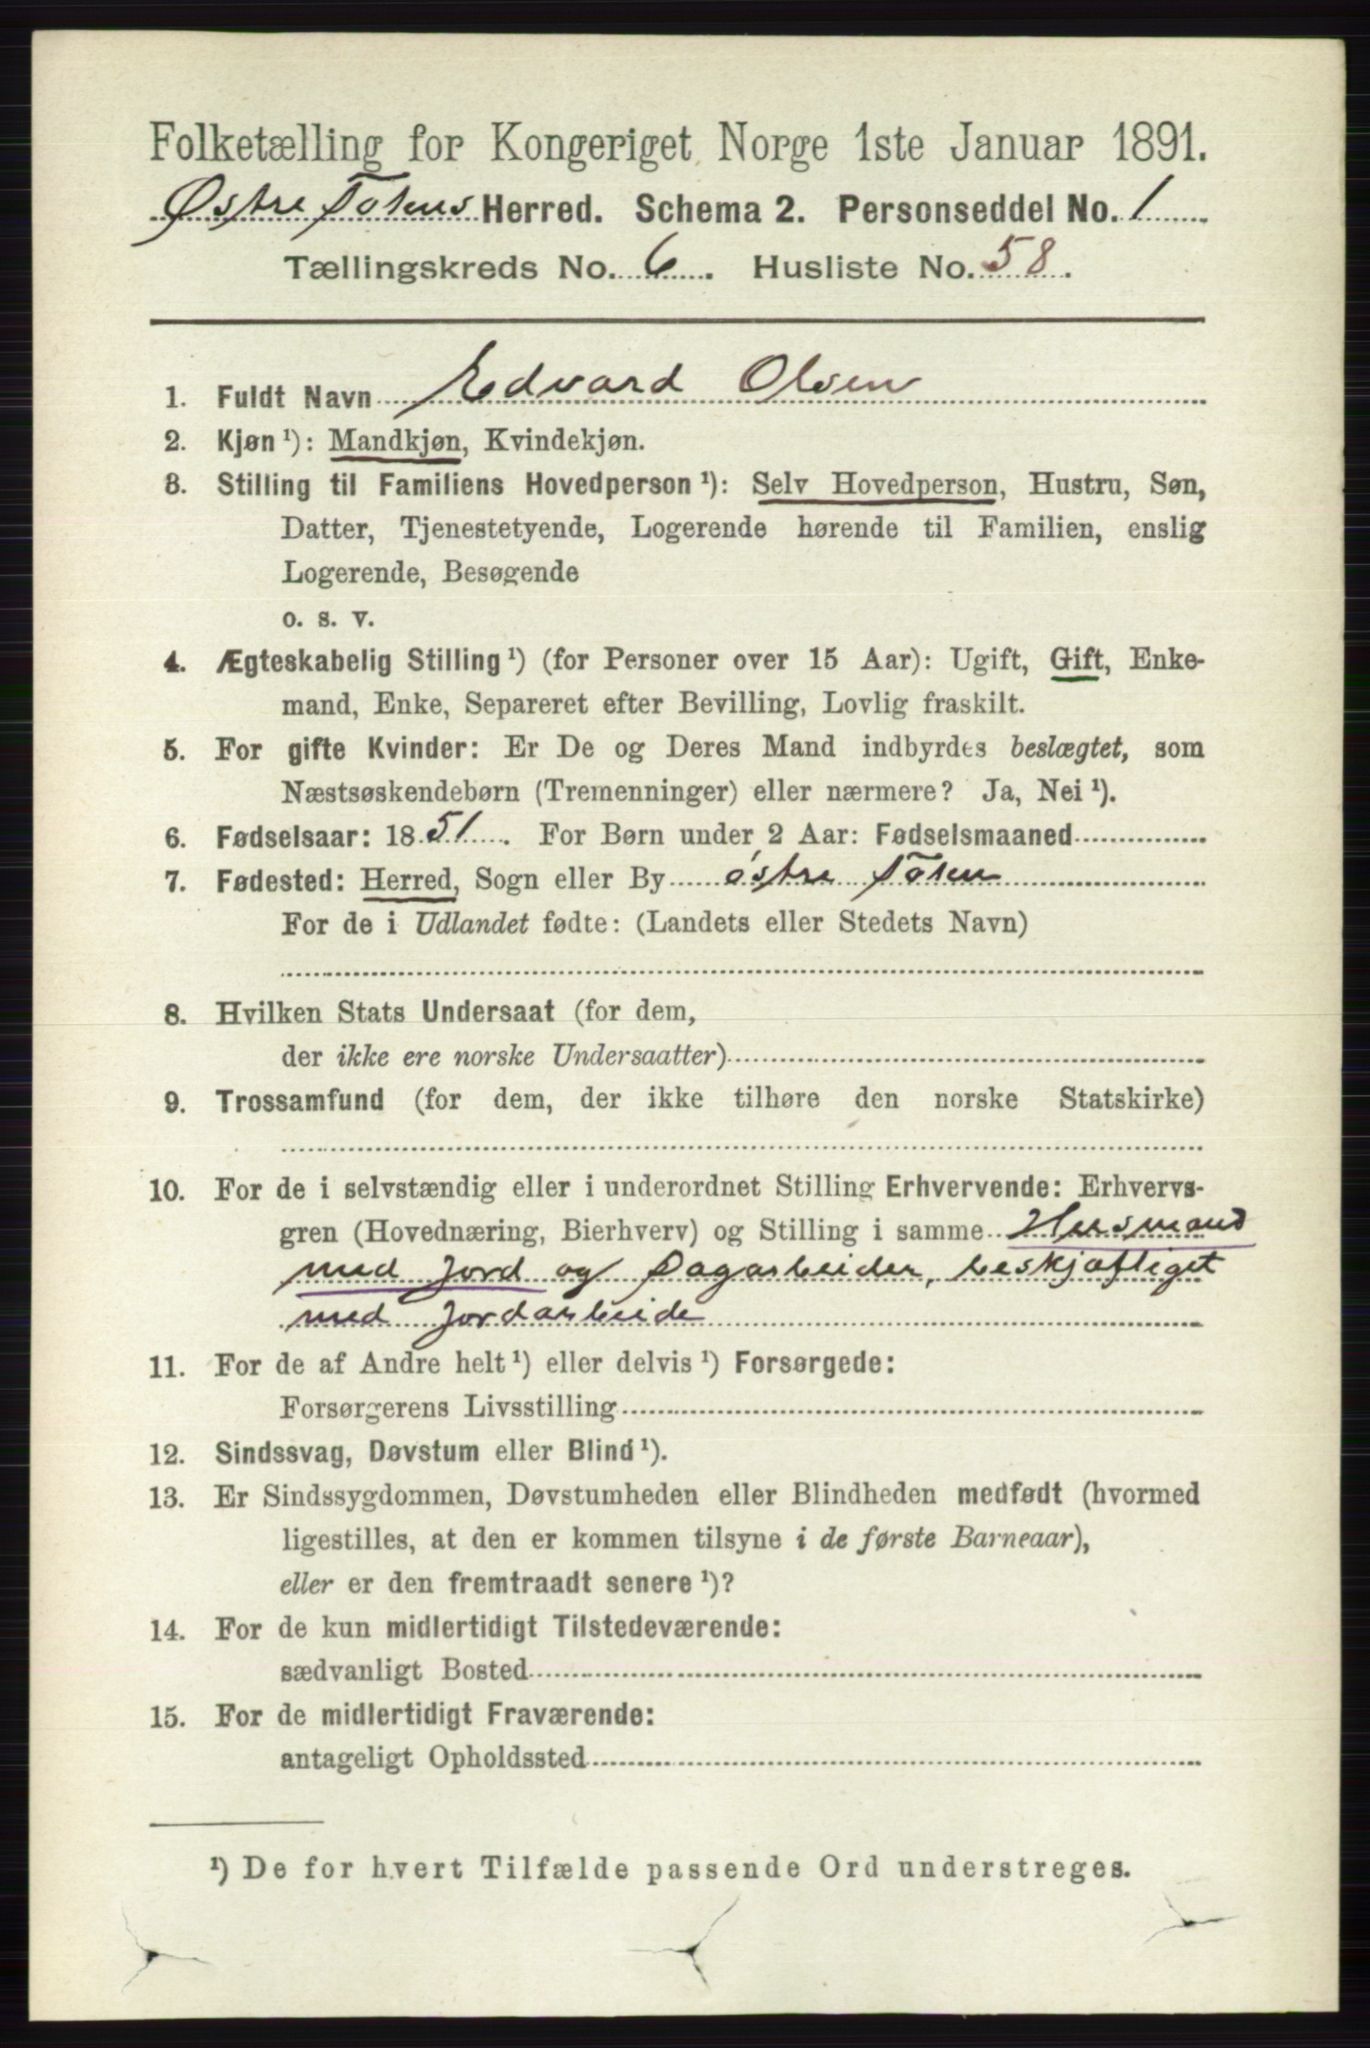 Folketælling for Kongeriget Norge 1ste Januar 1891.
Østre Totens Herred. Schema 2. Personseddel No. 1
Tællingskreds No. 6. Husliste No. 58.
1. Fuldt Navn Edvard Olsen
2. Kjøn ¹): Mandkjøn, Kvindekjøn.
3. Stilling til Familiens Hovedperson ¹): Selv Hovedperson, Hustru, Søn,
Datter, Tjenestetyende, Logerende hørende til Familien, enslig
Logerende, Besøgende
o. s. v.
4. Ægteskabelig Stilling ¹) (for Personer over 15 Aar): Ugift, Gift, Enke-
mand, Enke, Separeret efter Bevilling, Lovlig fraskilt.
5. For gifte Kvinder: Er De og Deres Mand indbyrdes beslægtet, som
Næstsøskendebørn (Tremenninger) eller nærmere? Ja, Nei ¹).
6. Fødselsaar: 1851. For Børn under 2 Aar: Fødselsmaaned
7. Fødested: Herred, Sogn eller By østre Toten
For de i Udlandet fødte: (Landets eller Stedets Navn)
8. Hvilken Stats Undersaat (for dem,
der ikke ere norske Undersaatter)
9. Trossamfund (for dem, der ikke tilhøre den norske Statskirke)
10. For de i selvstændig eller i underordnet Stilling Erhvervende: Erhvervs-
gren (Hovednæring, Bierhverv) og Stilling i samme Husmand
med Jord og Dagarbeider, beskjæftiget
med Jordarbeide
11. For de af Andre helt ¹) eller delvis ¹) Forsørgede:
Forsørgerens Livsstilling
12. Sindssvag, Døvstum eller Blind ¹).
13. Er Sindssygdommen, Døvstumheden eller Blindheden medfødt (hvormed
ligestilles, at den er kommen tilsyne i de første Barneaar),
eller er den fremtraadt senere ¹)?
14. For de kun midlertidigt Tilstedeværende:
sædvanligt Bosted
15. For de midlertidigt Fraværende:
antageligt Opholdssted
¹) De for hvert Tilfælde passende Ord understreges.